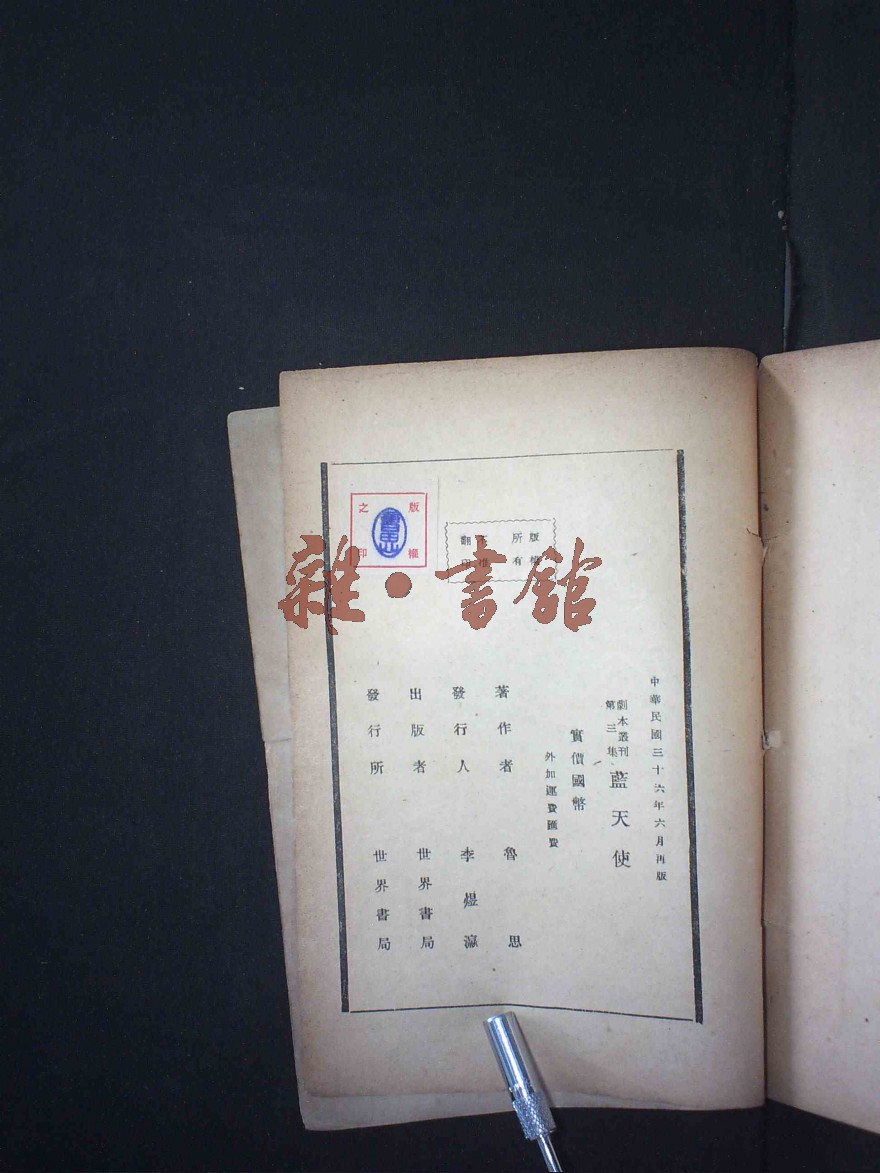 中華民國三十六年六月再版
劇本叢刊
第三集
藍天使
實價國幣
外加運費匯費
著作者 魯思
發行人 李煜瀛
出版者 世界書局
發行所 世界書局
版權
所有
不准
翻印
版權
之印
雜·書館